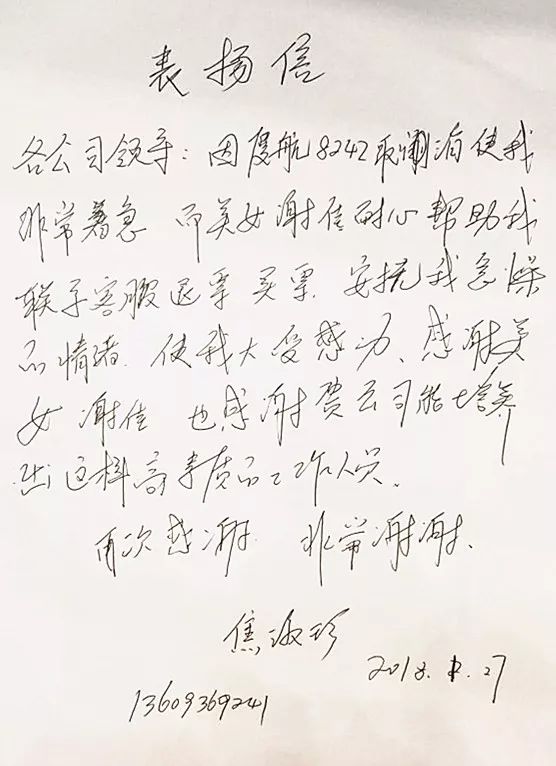 表扬信
各公司领导：因厦航8242取消使我
非常着急 而美女谢佳耐心帮助我
联系客服退票买票 安抚我急燥
的情绪 使我大受感动、感谢美
女谢佳 也感谢贵公司能培养
出这样高素质的工作人员、
再次感谢 非常谢谢、
焦淑珍
2018. .27
13609369241